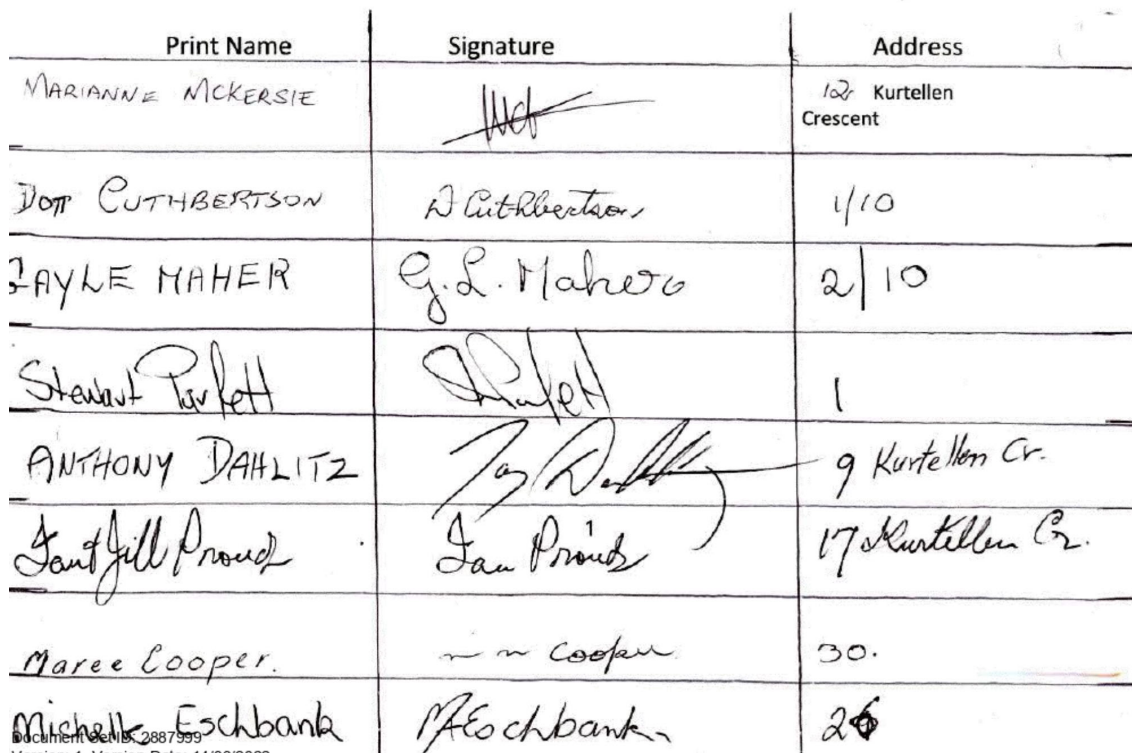 Print Name Signature Address
MARIANNE MCKERSIE 12 Kurtellen
Crescent
DOTT CUTHBERTSON D Cuthbertson 1/10
GAYLE MAHER G.L. Maher 2/10
Stewart Parfett SParfett 1
ANTHONY DAHLITZ 9 Kurtellen Cr.
Ian & Jill Proud Ian Proud 17 Kurtellen Cr.
Maree Cooper. m m Cooper 30.
Michelle Eschbank MEschbank 26
Document Set ID: 2887999